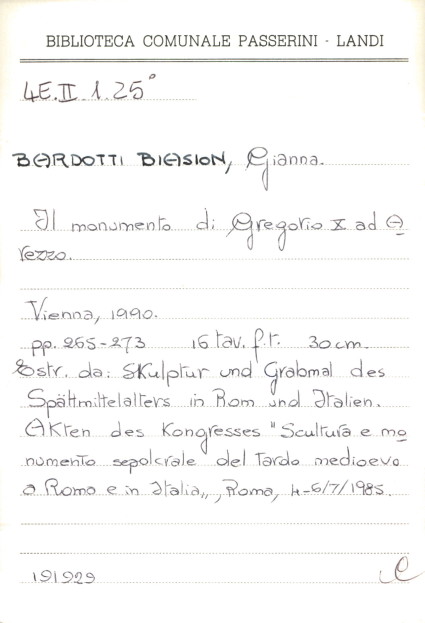 BIBLIOTECA COMUNALE PASSERINI - LANDI
4E.II.1.25°
BARDOTTI BIASION, Gianna.
Il monumento di Gregorio X ad A
rezzo.
Vienna, 1990.
pp. 265-273 16 tav. f.t. 30 cm.
Estr. da: Skulptur und Grabmal des
Spätmittelalters in Rom und Italien.
Akten des Kongresses "Scultura e mo
numento sepolcrale del Tardo medioevo
a Roma e in Italia„, Roma, 4-6/7/1985.
191929